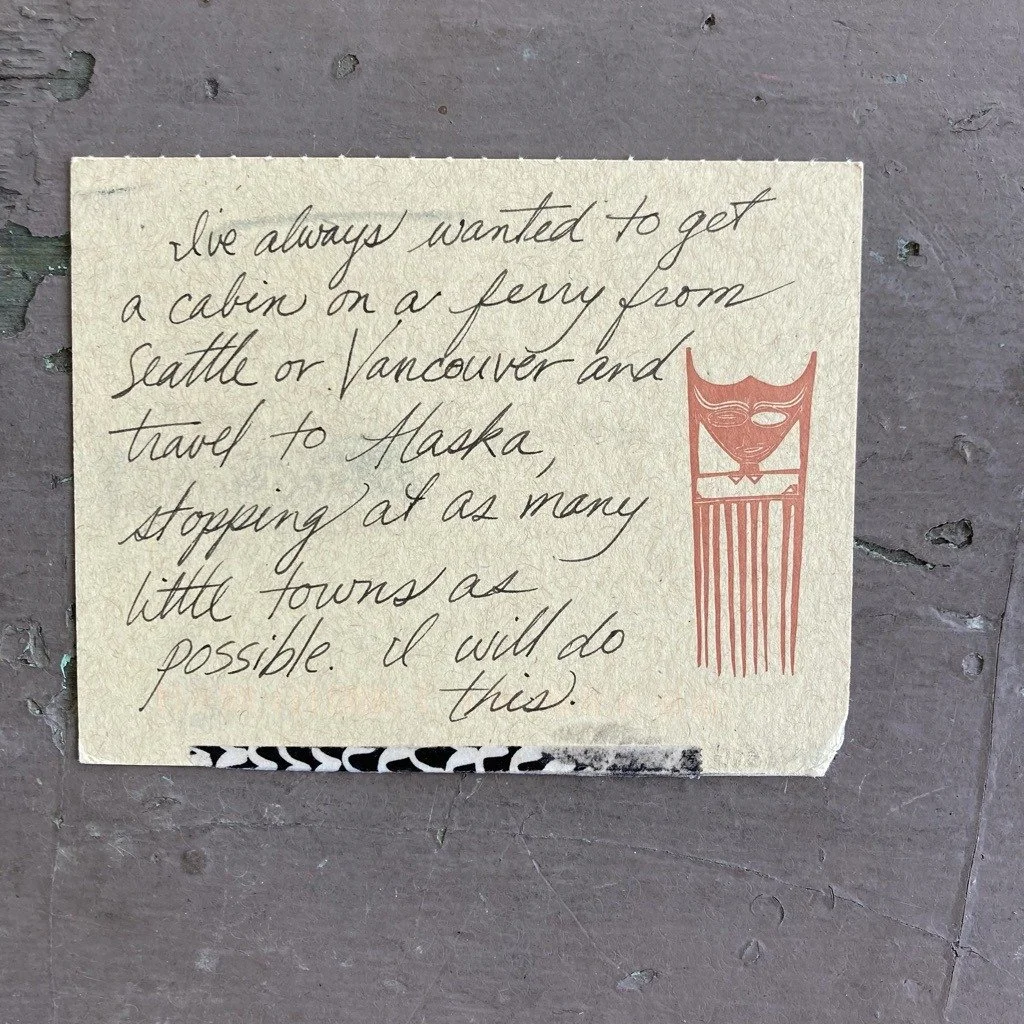 I've always wanted to get
a cabin on a ferry from
Seattle or Vancouver and
travel to Alaska,
stopping at as many
little towns as
possible. I will do
this.